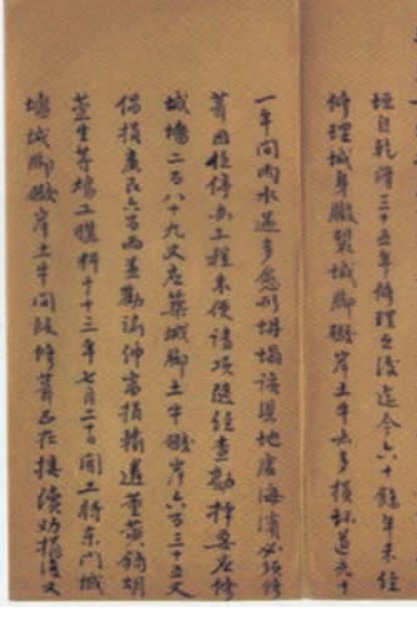 垣自乾隆三十五年修理之後迄今六十餘年未經
修理城身臌裂城脚礮岸土牛亦多損缺道光十
一年間雨水過多愈形坍塌該縣地處海濱必須修
葺因經停止工程未便請項隨經查勘擇要應修
城墻二百八十九丈應築城脚土牛礮岸六百三十五丈
倡捐廉民六百兩並勸諭紳富捐輸遴董黃錡胡
等墻工匠料于十三年七月二十日開工將東門城
墻城脚礮岸土牛間段修葺已在接續勸捐復又